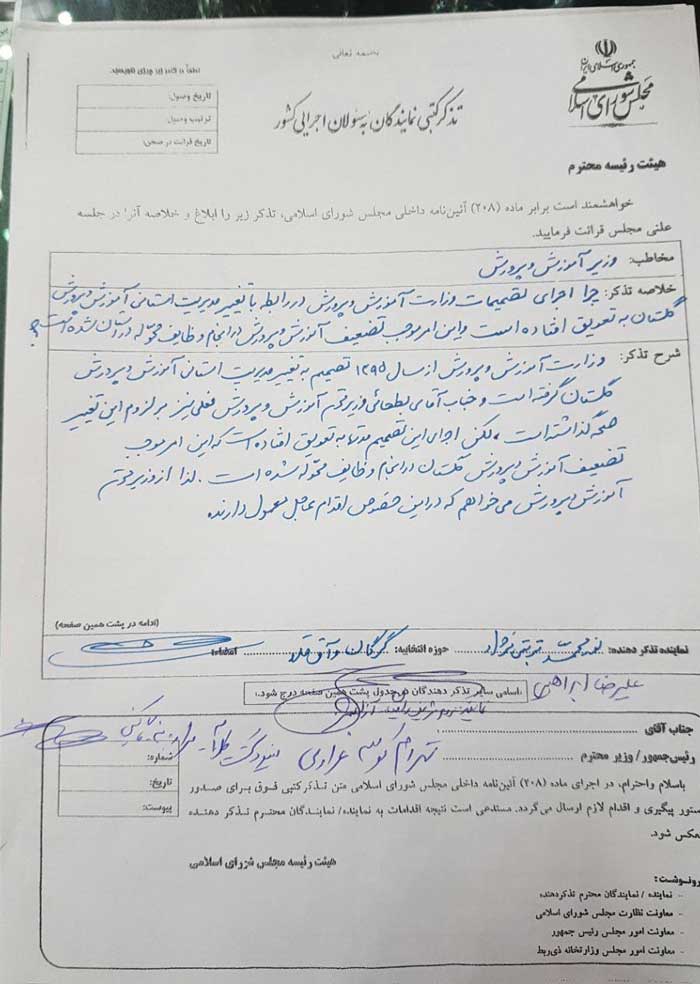 بسمه تعالی
جمهوری اسلامی ایران
مجلس شورای اسلامی
تذکر کتبی نمایندگان به مسئولان اجرایی کشور
لطفاً در کادر زیر چیزی ننویسید.
تاریخ وصول:
ترتیب وصول:
تاریخ قرائت در صحن:
هیئت رئیسه محترم
خواهشمند است برابر ماده (۲۰۸) آئین‌نامه داخلی مجلس شورای اسلامی، تذکر زیر را ابلاغ و خلاصه آنرا در جلسه
علنی مجلس قرائت فرمایید.
مخاطب: وزیر آموزش و پرورش
خلاصه تذکر: چرا اجرای تصمیمات وزارت آموزش و پرورش در رابطه با تغییر مدیریت استانی آموزش و پرورش
گلستان به تعویق افتاده است و این امر موجب تضعیف آموزش و پرورش در انجام وظایف محوّله در استان شده است؟
شرح تذکر: وزارت آموزش و پرورش از سال ۱۳۹۵ تصمیم به تغییر مدیریت استانی آموزش و پرورش
گلستان گرفته است و جناب آقای بطحائی وزیر محترم آموزش و پرورش فعلی نیز بر لزوم این تغییر
صحّه گذاشته است، لکن اجرای این تصمیم مدتها به تعویق افتاده است که این امر موجب
تضعیف آموزش و پرورش گلستان در انجام وظایف محوّله شده است. لذا از وزیر محترم
آموزش و پرورش می‌خواهم که در این خصوص اقدام عاجل معمول دارند.
(ادامه در پشت همین صفحه)
نماینده تذکر دهنده: نورمحمد تربتی نژاد حوزه انتخابیه: گرگان و آق قلا امضاء:
علیرضا ابراهیمی
اسامی سایر تذکر دهندگان در جدول پشت همین صفحه درج شود.
جناب آقای
رئیس‌جمهور / وزیر محترم
شماره:
تاریخ:
پیوست:
باسلام واحترام، در اجرای ماده (۲۰۸) آئین‌نامه داخلی مجلس شورای اسلامی متن تذکر کتبی فوق برای صدور
ستور پیگیری و اقدام لازم ارسال می‌گردد. مستدعی است نتیجه اقدامات به نماینده/ نمایندگان محترم تذکر دهنده
عکس شود.
هیئت رئیسه مجلس شورای اسلامی
رونوشت:
- نماینده / نمایندگان محترم تذکردهنده
- معاونت نظارت مجلس شورای اسلامی
- معاونت امور مجلس رئیس جمهور
- معاونت امور مجلس وزارتخانه ذی‌ربط